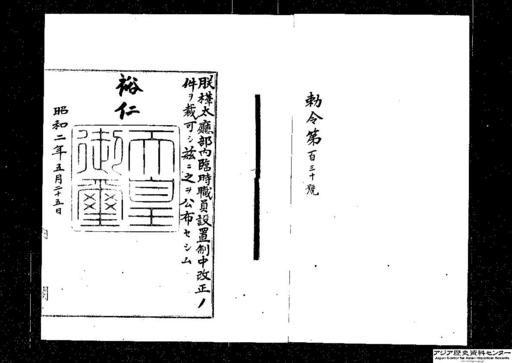 勅令第百三十號
朕樺太廳部內臨時職員設置制中改正ノ
件ヲ裁可シ茲ニ之ヲ公布セシム
裕仁
天皇御璽
昭和二年五月二十五日
アジア歴史資料センター
Japan Center for Asian Historical Records